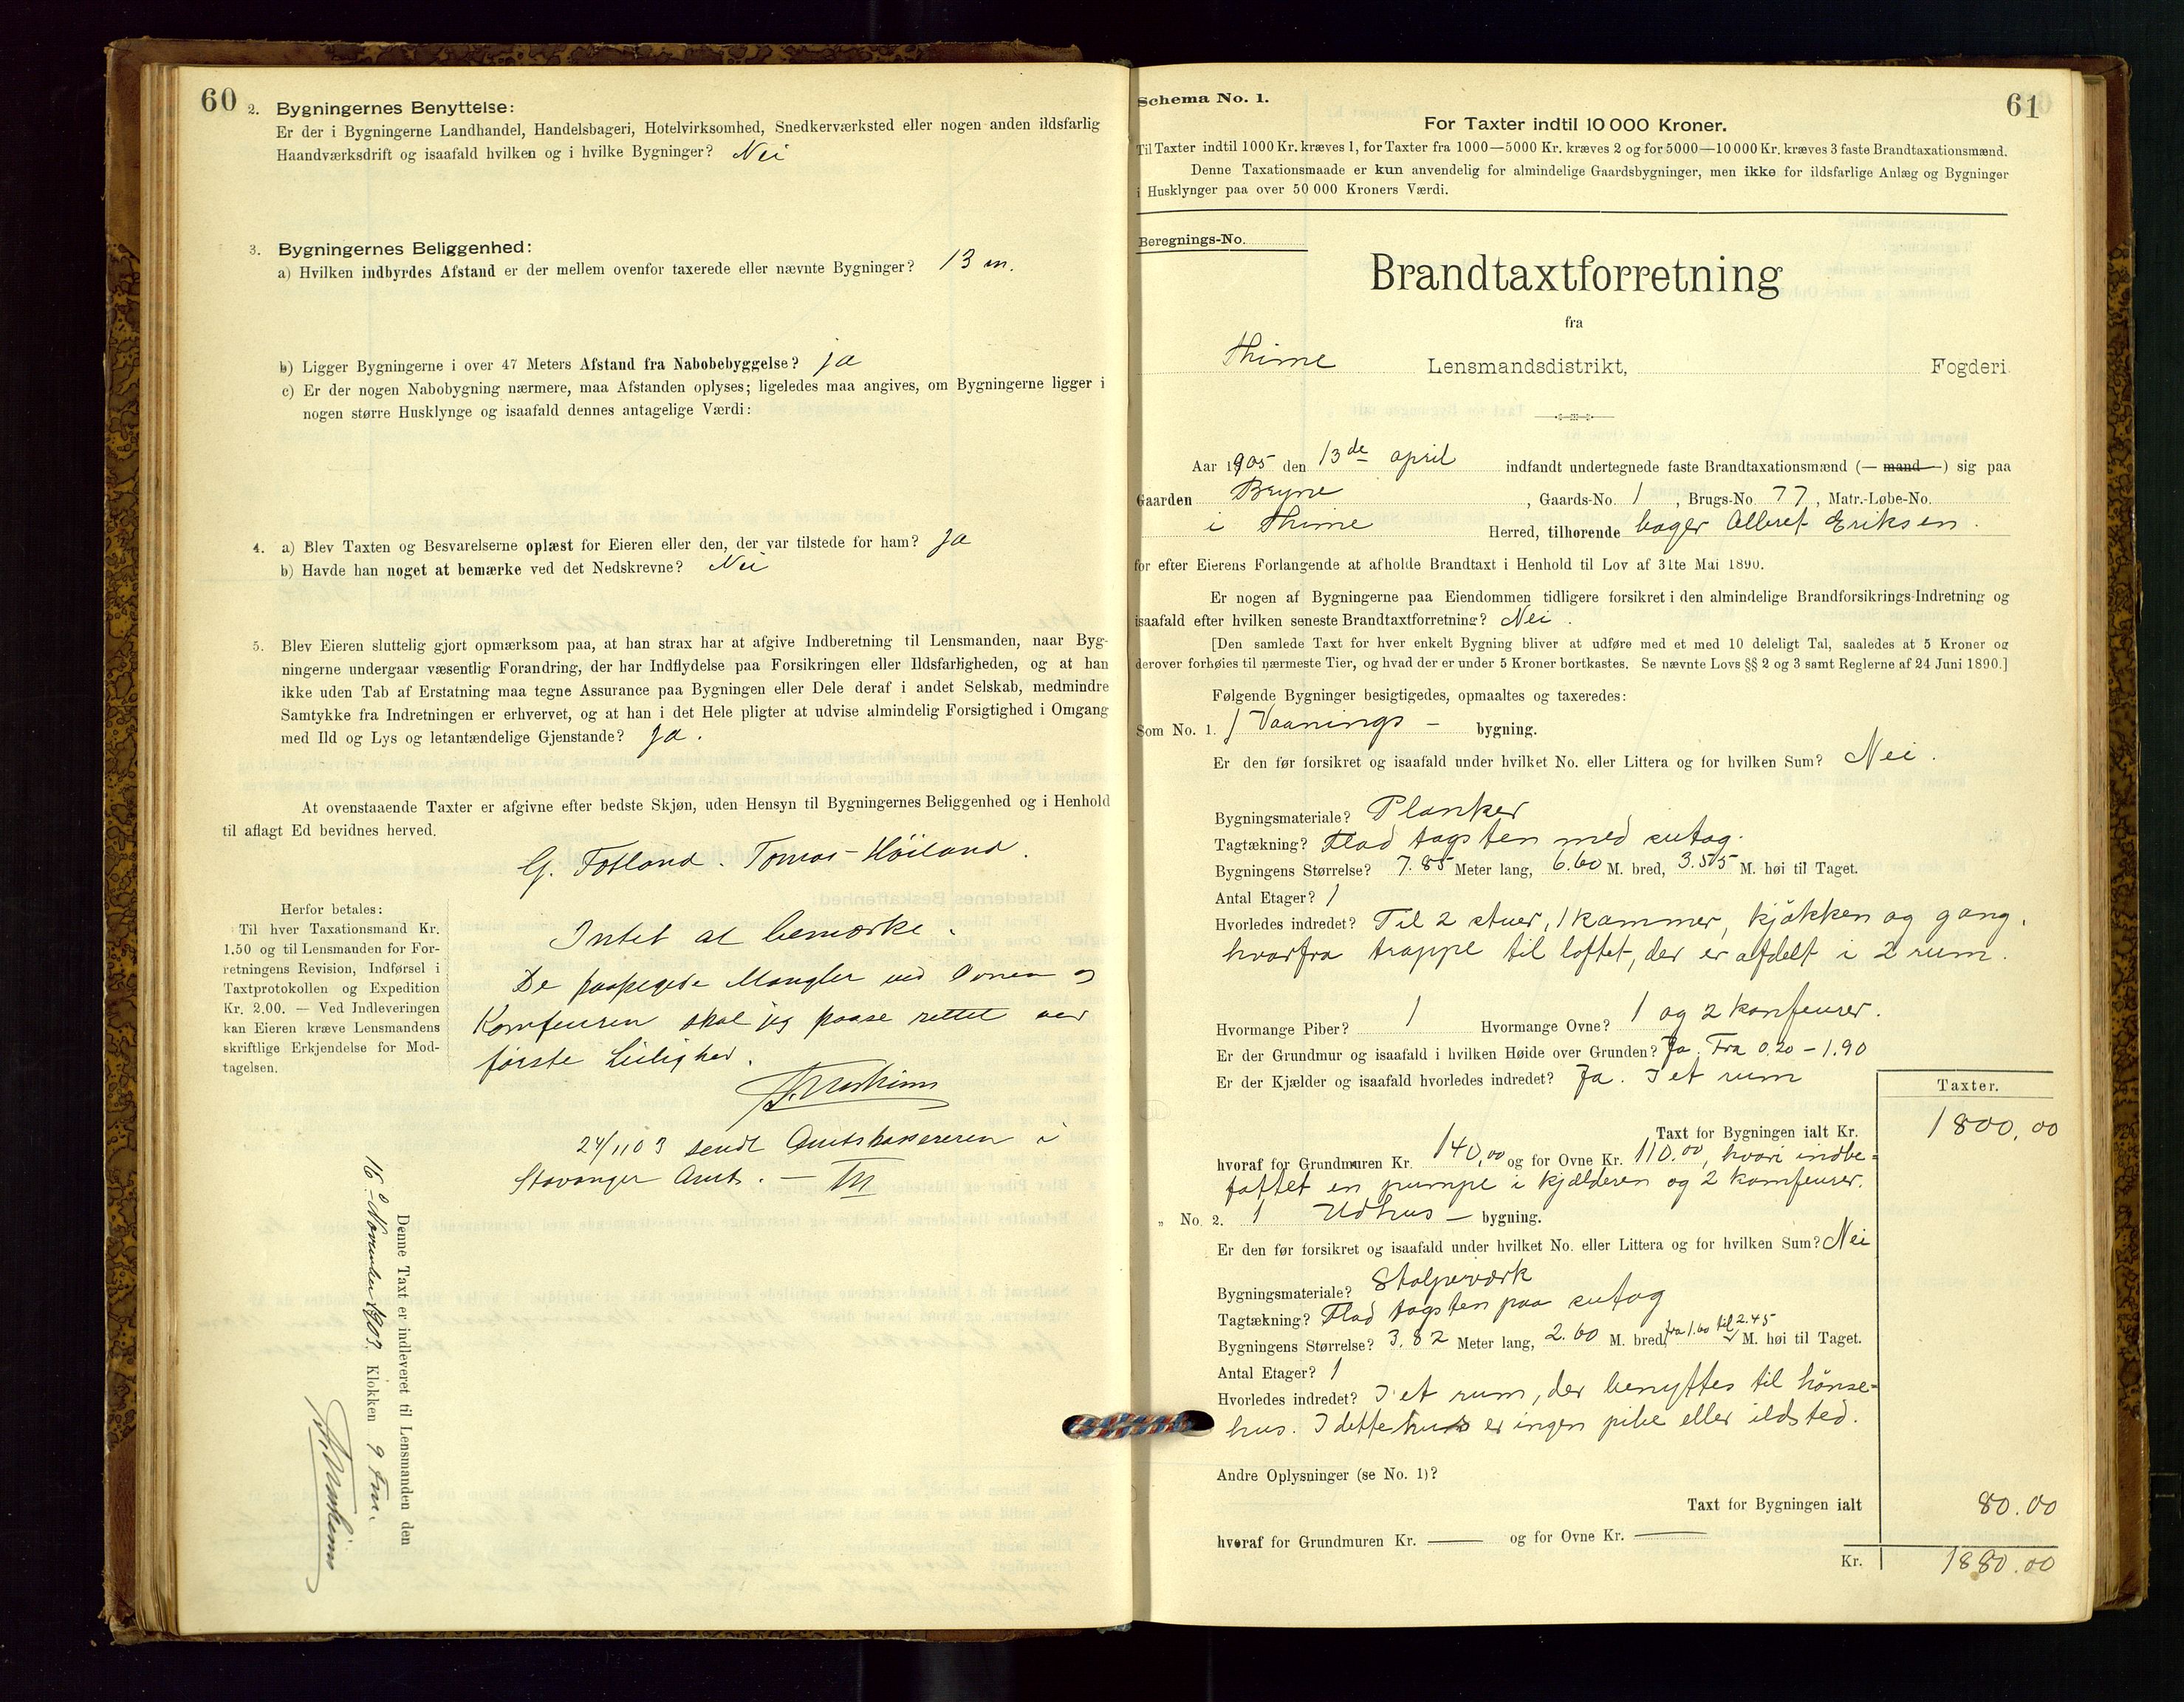 60
2. Bygningernes Benyttelse:
Er der i Bygningerne Landhandel, Handelsbageri, Hotelvirksomhed, Snedkerværksted eller nogen anden ildsfarlig
Haandværksdrift og isaafald hvilken og i hvilke Bygninger? Nei
3. Bygningernes Beliggenhed:
a) Hvilken indbyrdes Afstand er der mellem ovenfor taxerede eller nævnte Bygninger? 13 m.
b) Ligger Bygningerne i over 47 Meters Afstand fra Nabobebyggelse? ja
c) Er der nogen Nabobygning nærmere, maa Afstanden oplyses; ligeledes maa angives, om Bygningerne ligger i
nogen større Husklynge og isaafald dennes antagelige Værdi:
4. a) Blev Taxten og Besvarelserne oplæst for Eieren eller den, der var tilstede for ham? Ja
b) Havde han noget at bemærke ved det Nedskrevne? Nei
5. Blev Eieren sluttelig gjort opmærksom paa, at han strax har at afgive Indberetning til Lensmanden, naar Byg-
ningerne undergaar væsentlig Forandring, der har Indflydelse paa Forsikringen eller Ildsfarligheden, og at han
ikke uden Tab af Erstatning maa tegne Assurance paa Bygningen eller Dele deraf i andet Selskab, medmindre
Samtykke fra Indretningen er erhvervet, og at han i det Hele pligter at udvise almindelig Forsigtighed i Omgang
med Ild og Lys og letantændelige Gjenstande? Ja.
At ovenstaaende Taxter er afgivne efter bedste Skjøn, uden Hensyn til Bygningernes Beliggenhed og i Henhold
til aflagt Ed bevidnes herved.
G. Fotland. Tomas Höiland.
Herfor betales:
Til hver Taxationsmand Kr.
1.50 og til Lensmanden for For-
retningens Revision, Indførsel i
Taxtprotokollen og Expedition
Kr. 2.00. — Ved Indleveringen
kan Eieren kræve Lensmandens
skriftlige Erkjendelse for Mod-
tagelsen.
Intet at bemærke.
De paapegede Mangler ved Ovnen og
Komfuren skal jeg paase rettet ved
første Leilighed.
24/11 03 sendt Amtskassereren i
Stavanger Amt. —
Denne Taxt er indleveret til Lensmanden den
16de November 1903. Klokken 9 Fm.
61
Schema No. 1.
For Taxter indtil 10 000 Kroner.
Til Taxter indtil 1000 Kr. kræves 1, for Taxter fra 1000—5000 Kr. kræves 2 og for 5000—10 000 Kr. kræves 3 faste Brandtaxationsmænd.
Denne Taxationsmaade er kun anvendelig for almindelige Gaardsbygninger, men ikke for ildsfarlige Anlæg og Bygninger
i Husklynger paa over 50 000 Kroners Værdi.
Beregnings-No.
Brandtaxtforretning
fra
Thime Lensmandsdistrikt, Fogderi.
Aar 1905 den 13de april indfandt undertegnede faste Brandtaxationsmænd (— mand —) sig paa
Gaarden Bryne, Gaards-No. 1, Brugs-No. 77, Matr.-Løbe-No.
i Thime Herred, tilhørende bager Albret Eriksen.
for efter Eierens Forlangende at afholde Brandtaxt i Henhold til Lov af 31te Mai 1890.
Er nogen af Bygningerne paa Eiendommen tidligere forsikret i den almindelige Brandforsikrings-Indretning og
isaafald efter hvilken seneste Brandtaxtforretning? Nei.
[Den samlede Taxt for hver enkelt Bygning bliver at udføre med et med 10 deleligt Tal, saaledes at 5 Kroner og
derover forhøies til nærmeste Tier, og hvad der er under 5 Kroner bortkastes. Se nævnte Lovs §§ 2 og 3 samt Reglerne af 24 Juni 1890.]
Følgende Bygninger besigtigedes, opmaaltes og taxeredes:
Som No. 1. 1 Vaanings- bygning.
Er den før forsikret og isaafald under hvilket No. eller Littera og for hvilken Sum? Nei.
Bygningsmateriale? Planker
Tagtækning? Flad tagsten med sutag.
Bygningens Størrelse? 7.85 Meter lang, 6.60 M. bred, 3.55 M. høi til Taget.
Antal Etager? 1
Hvorledes indredet? Til 2 stuer, 1 kammer, kjøkken og gang,
hvorfra trappe til loftet, der er afdelt i 2 rum.
Hvormange Piber? 1 Hvormange Ovne? 1 og 2 komfeurer.
Er der Grundmur og isaafald i hvilken Høide over Grunden? Ja. Fra 0.20 - 1.90
Er der Kjælder og isaafald hvorledes indredet? Ja. I et rum
Taxter.
Taxt for Bygningen ialt Kr. 1800,00
hvoraf for Grundmuren Kr. 140,00 og for Ovne Kr. 110.00, hvori indbe-
fattet en pumpe i kjælderen og 2 komfeurer.
„ No. 2. 1 Udhus- bygning.
Er den før forsikret og isaafald under hvilket No. eller Littera og for hvilken Sum? Nei
Bygningsmateriale? Stolpeværk
Tagtækning? Flad tagsten paa sutag
Bygningens Størrelse? 3.82 Meter lang, 2.60 M. bred, fra 1.60 til 2.45 M. høi til Taget.
Antal Etager? 1
Hvorledes indredet? I et rum, der benyttes til hønse-
hus. I dette hus er ingen pibe eller ildsted.
Andre Oplysninger (se No. 1)?
Taxt for Bygningen ialt 80.00
hvoraf for Grundmuren Kr. — og for Ovne Kr. —
Kr. 1880.00